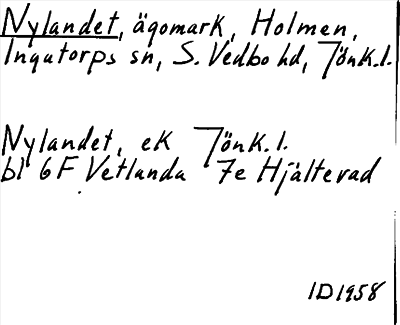 Nylandet, ägomark, Holmen,
Ingatorps sn, S. Vedbo hd, Jönk.l.
Nylandet, ek Jönk.l.
bl 6F Vetlanda 7e Hjälterad
ID1958